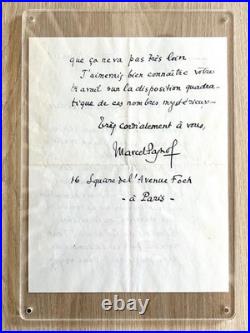 que ça ne va pas très loin
J'aimerais bien connaître votre
travail sur la disposition quadra-
tique de ces nombres mystérieux..
Très cordialement à vous,
Marcel Pagnol
16 Square de l'Avenue Foch
- à Paris -